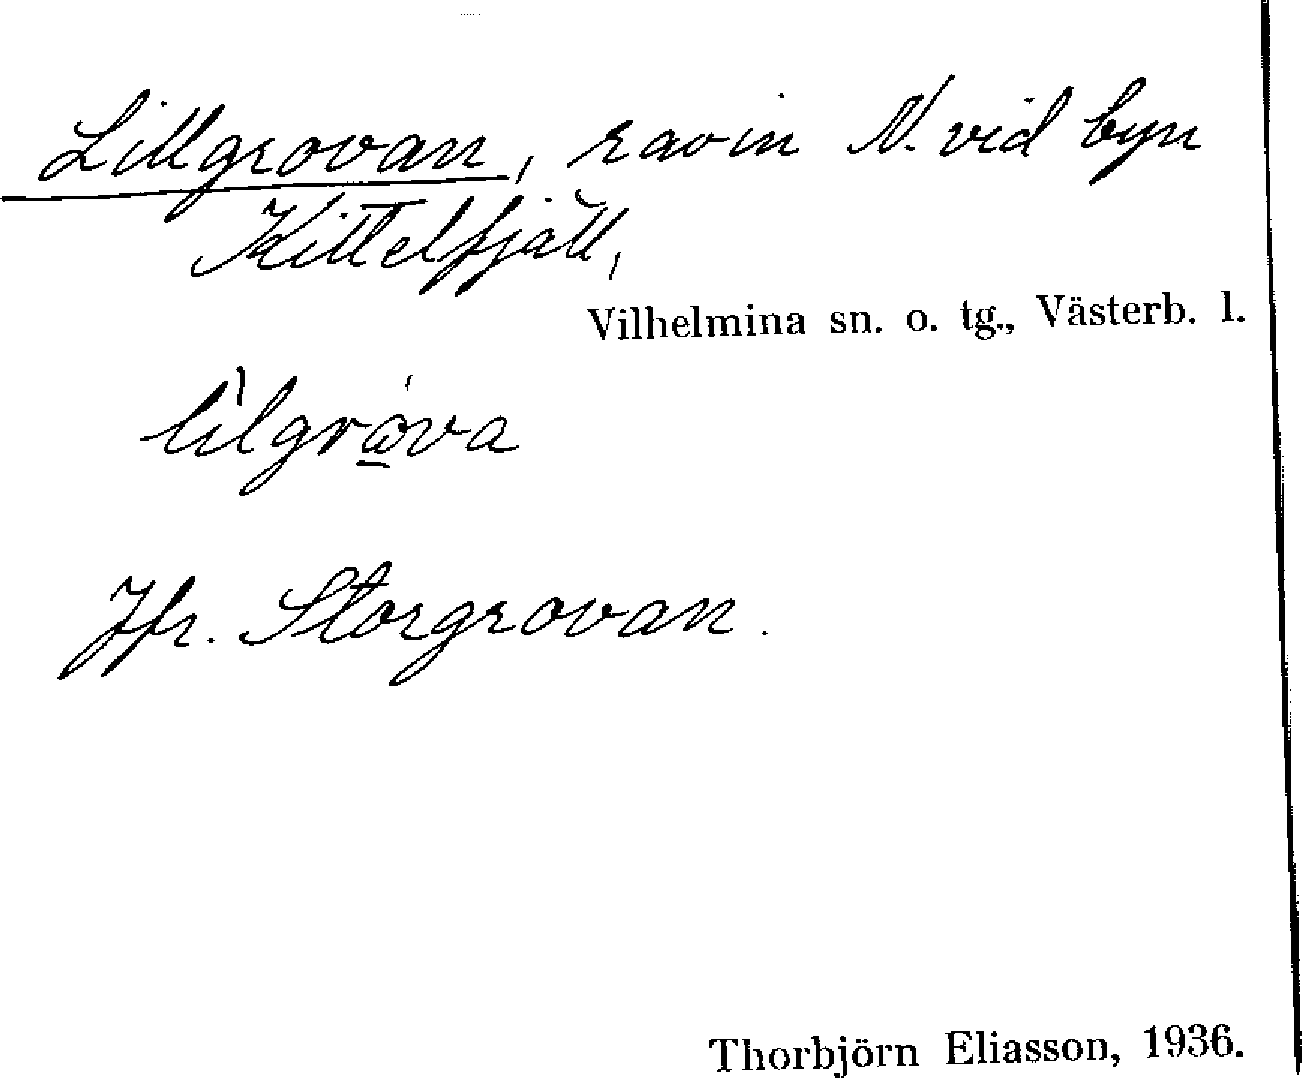 Lillgrovan, ravin N. vid byn
Kittelfjäll,
Vilhelmina sn. o. tg., Västerb. l.
lìlgrώ̱va
Jfr. Storgrovan.
Thorbjörn Eliasson, 1936.